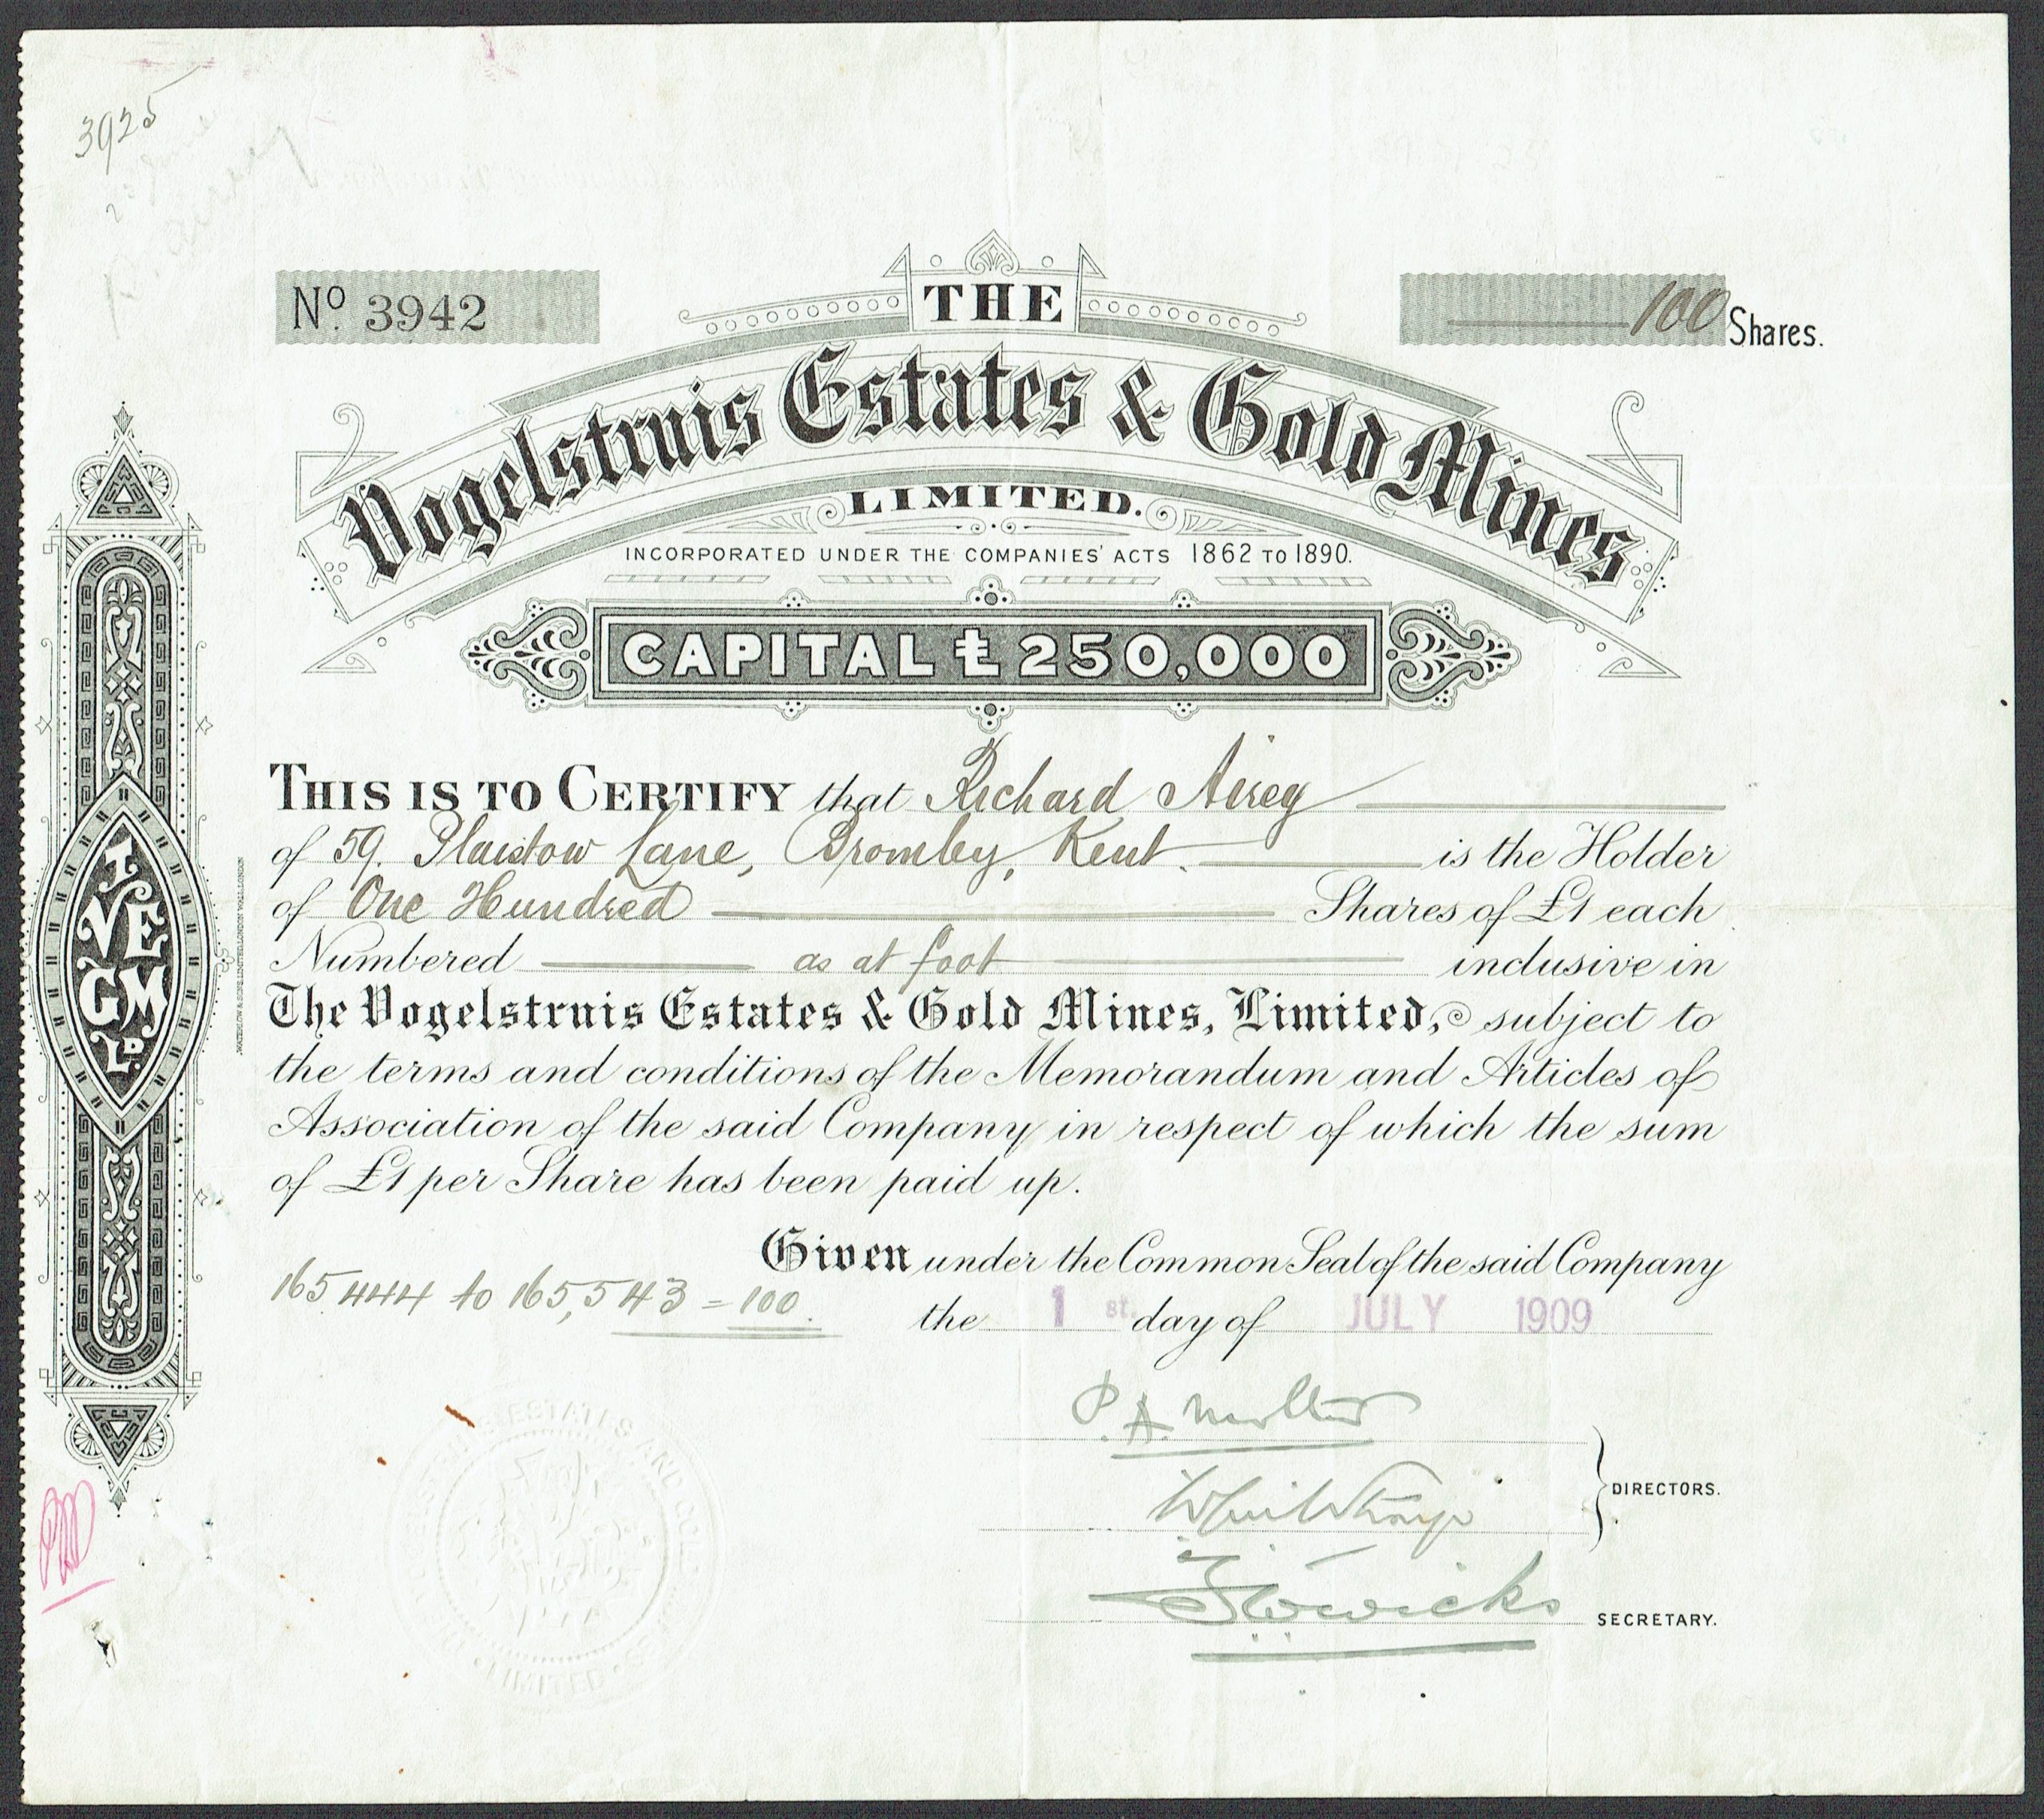 3925
No. 3942
100 Shares.
THE
Vogelstruis Estates & Gold Mines
LIMITED.
INCORPORATED UNDER THE COMPANIES' ACTS 1862 TO 1890.
CAPITAL £250,000
THIS IS TO CERTIFY that Richard Airey
of 59. Plaistow Lane, Bromley, Kent. is the Holder
of One Hundred Shares of £1 each
Numbered as at foot inclusive in
The Vogelstruis Estates & Gold Mines, Limited, subject to
the terms and conditions of the Memorandum and Articles of
Association of the said Company in respect of which the sum
of £1 per Share has been paid up.
Given under the Common Seal of the said Company
165444 to 165,543 = 100
the 1st. day of JULY 1909
P. A. 
DIRECTORS.
SECRETARY.
T
VE
GM
LD.
WATERLOW & SONS LIMITED, LONDON WALL, LONDON
ESTATES AND GOLD
LIMITED